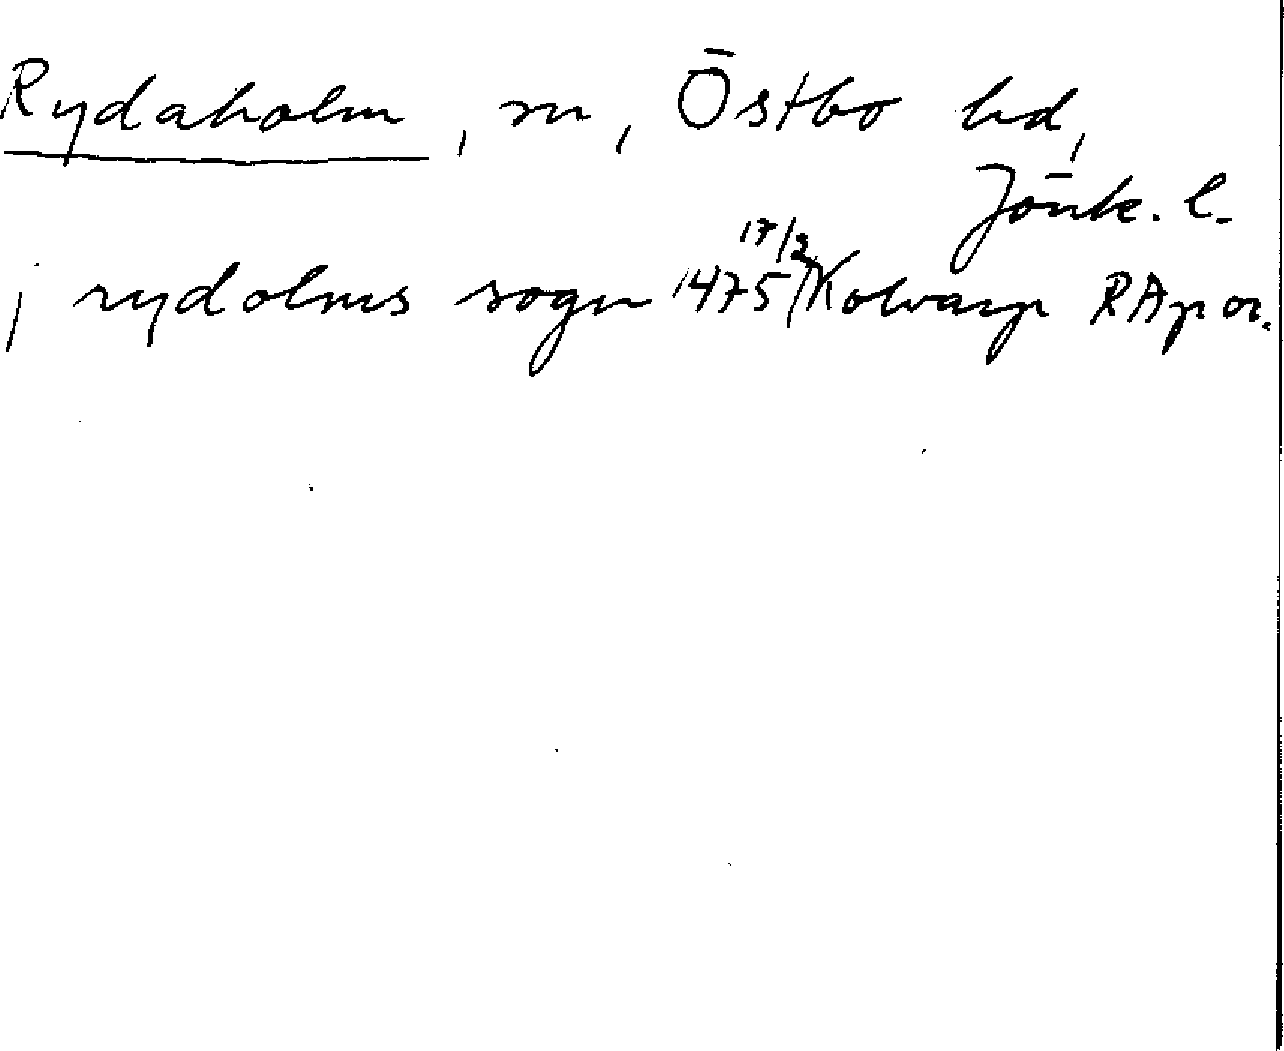 Rydaholm, sn, Östbo hd,
Jönk. l.
j rydolms sogn 1475 17/2 Kolvarp RAp or.